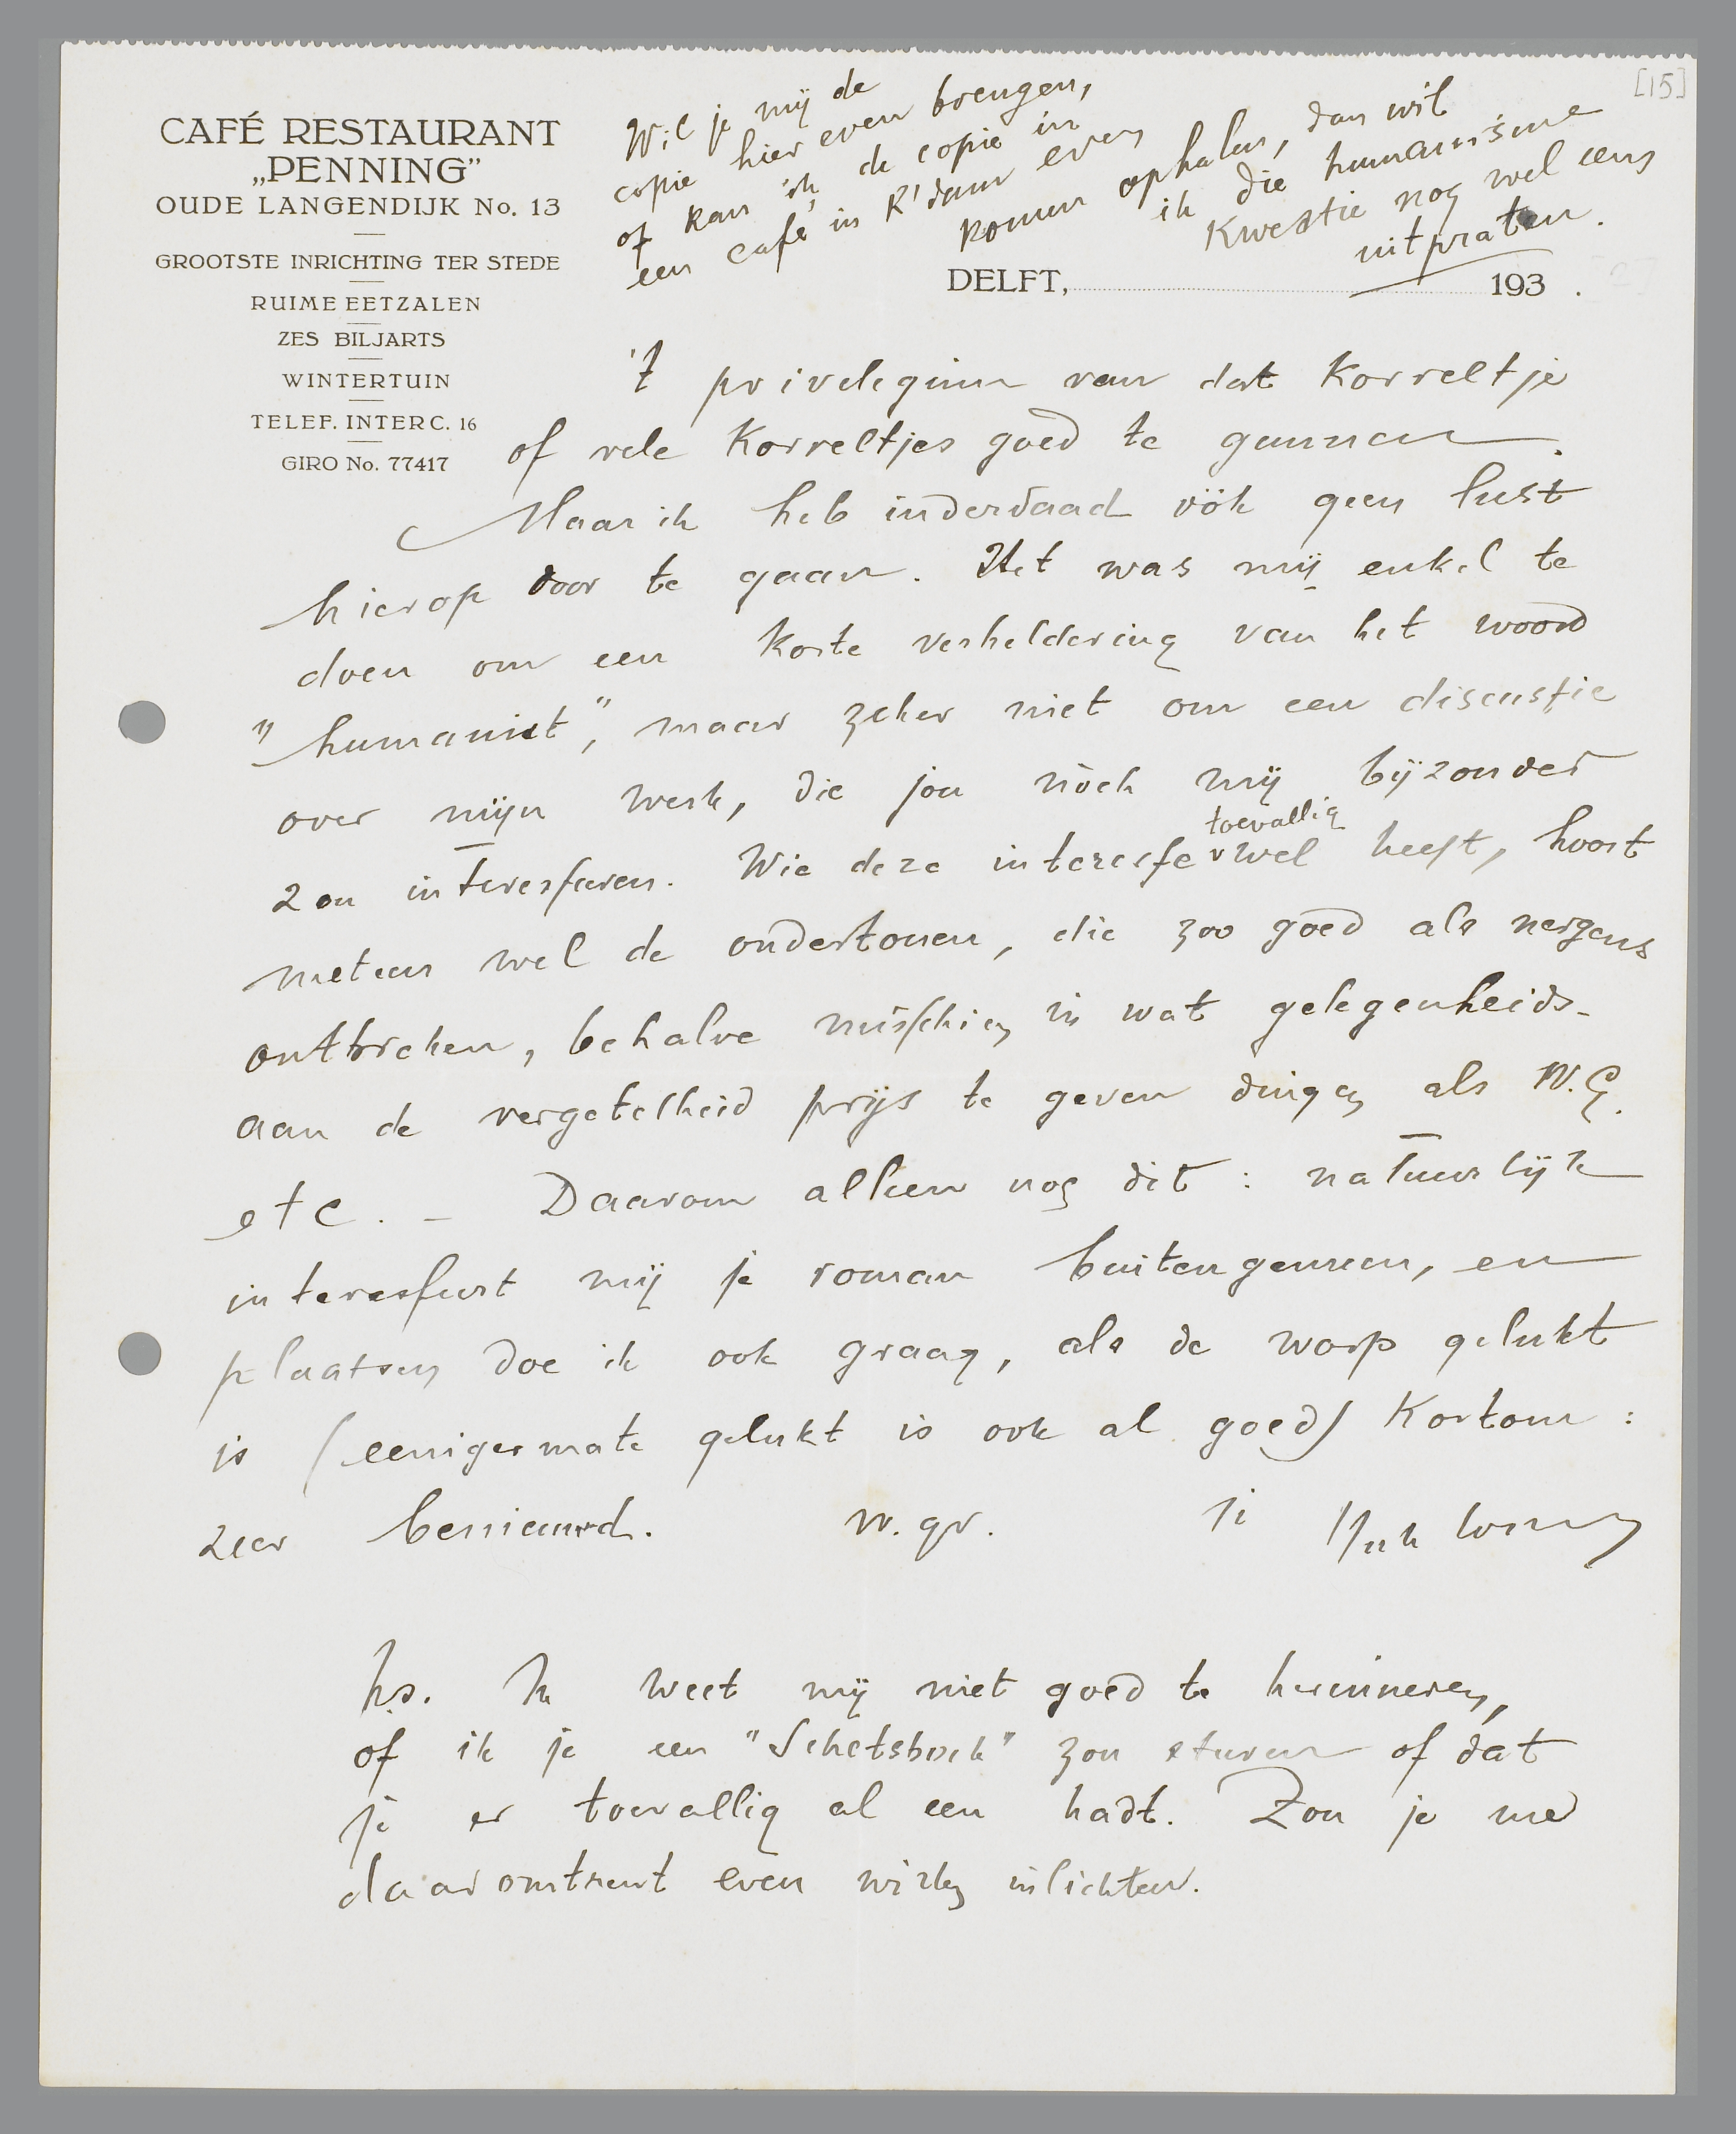 [15]
CAFÉ RESTAURANT
„PENNING”
OUDE LANGENDIJK No. 13
GROOTSTE INRICHTING TER STEDE
RUIME EETZALEN
ZES BILJARTS
WINTERTUIN
TELEF. INTERC. 16
GIRO No. 77417
Wil je mij de
copie hier even brengen,
of kan ik de copie in
een café in R'dam even
komen ophalen, dan wil
ik die humanisme
kwestie nog wel eens
uitpraten.
DELFT, 193 .
[2]
't privelegium van dat Korreltje
of vele Korreltjes goed te gunnen.
Maar ik heb inderdaad óók geen lust
hierop door te gaan. Het was mij enkel te
doen om een korte verheldering van het woord
"humanist", maar zeker niet om een discussie
over mijn werk, die jou nòch mij bijzonder
zou interesseren. Wie deze interesse toevallig wel heeft, hoort
meteen wel de ondertonen, die zoo goed als nergens
ontbreken, behalve misschien in wat gelegenheids-
aan de vergetelheid prijs te geven dingen als W.G.
etc. - Daarom alleen nog dit: natuurlijk
interesseert mij je roman buitengemeen, en
plaatsen doe ik ook graag, als de worp gelukt
is (eenigermate gelukt is ook al goed) Kortom:
zeer benieuwd. v. gr. je
ps. Ik weet mij niet goed te herinneren,
of ik je een "Schetsboek" zou sturen of dat
je er toevallig al een hadt. Zou je me
daaromtrent even willen inlichten.